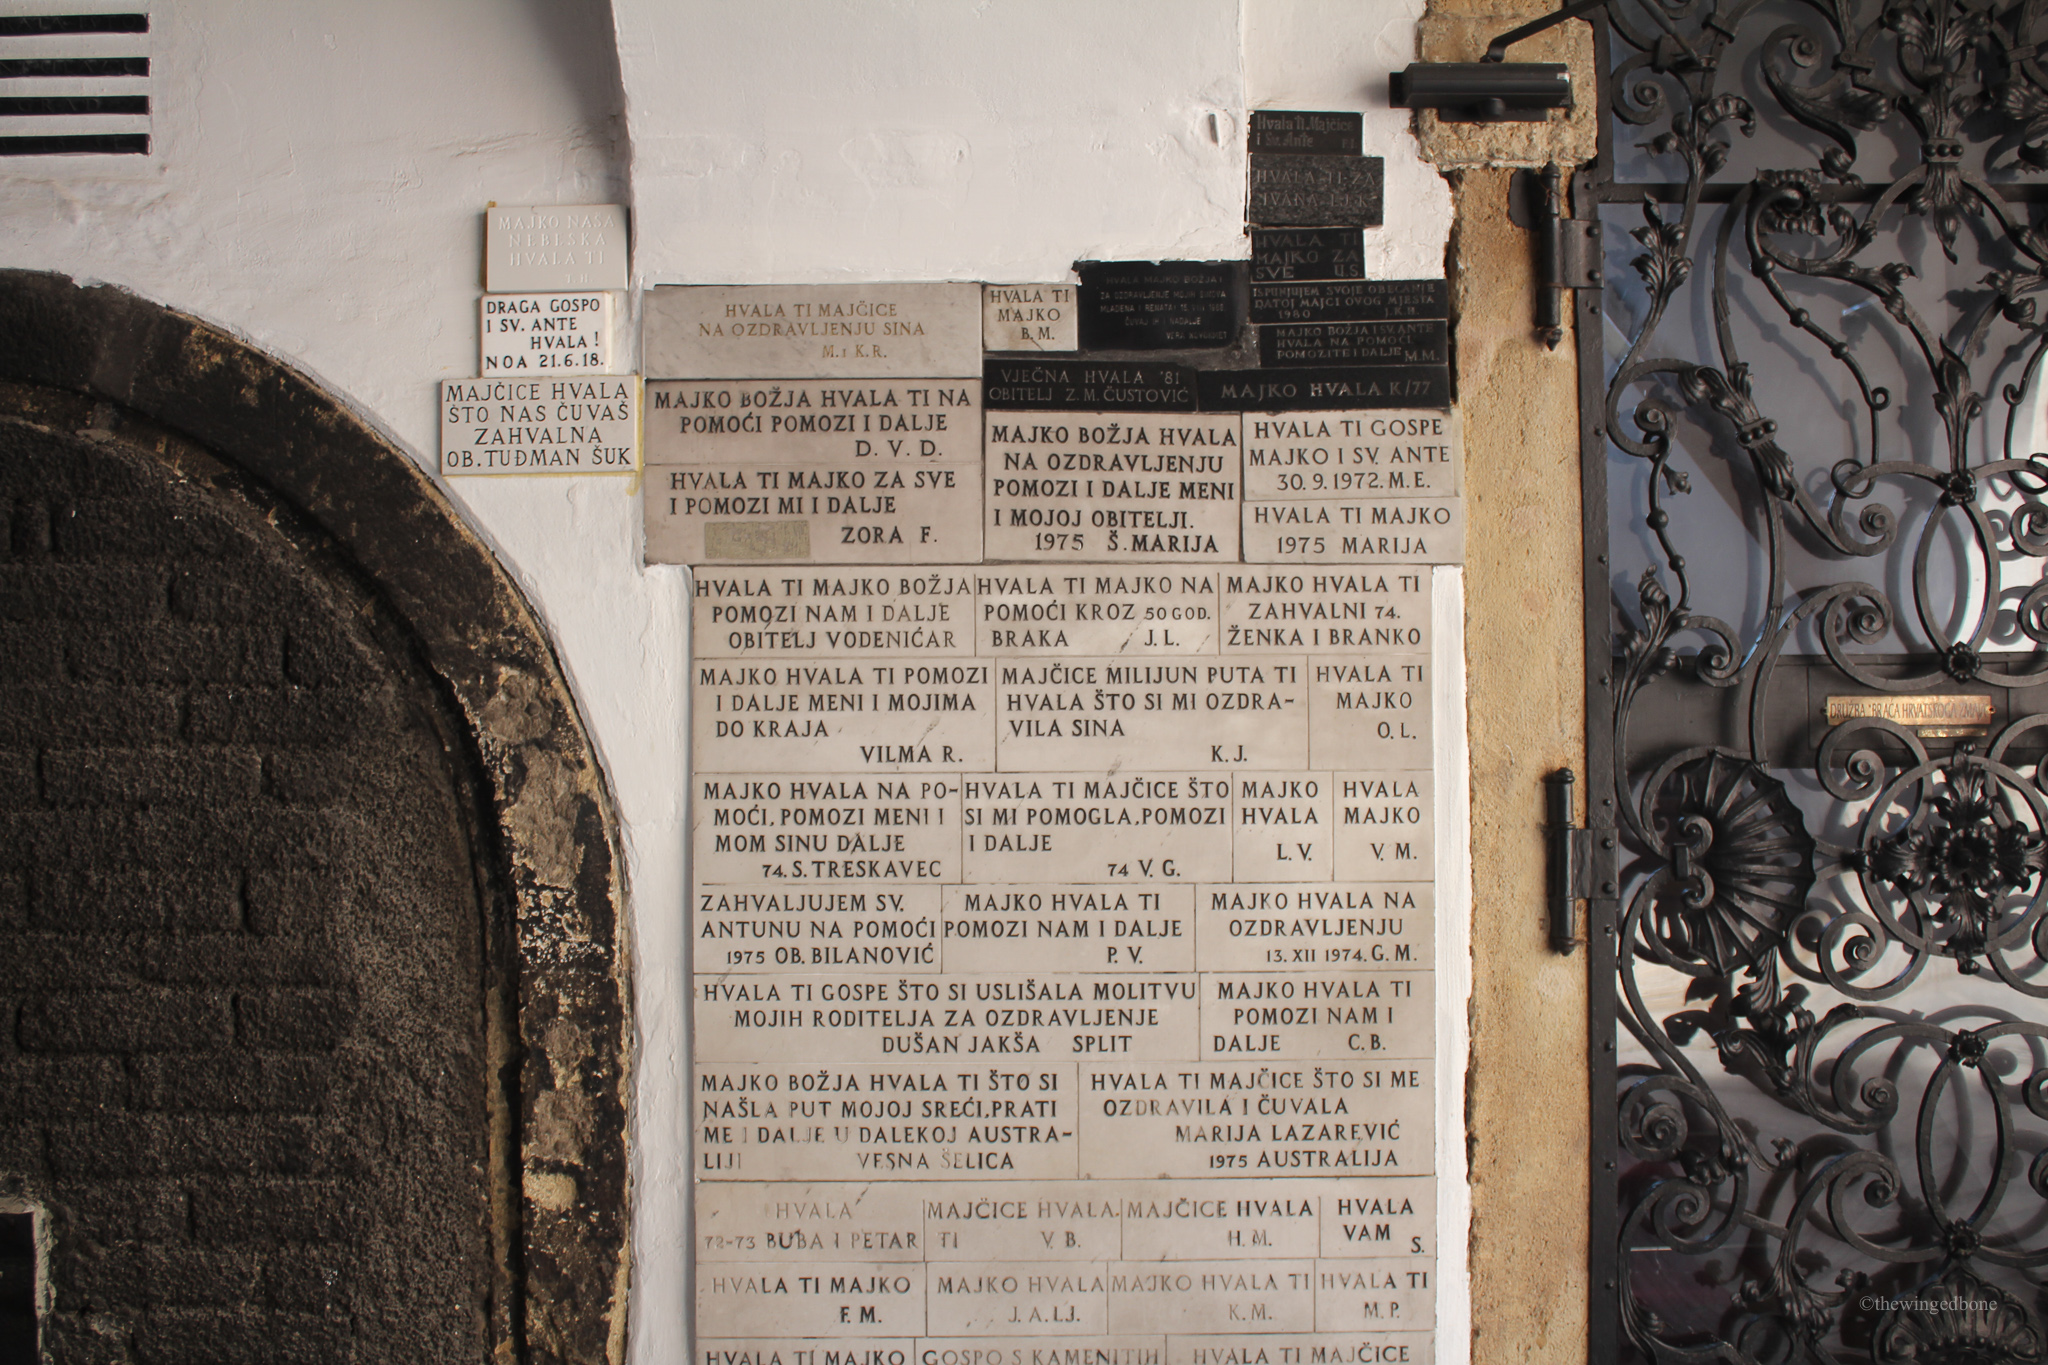 MAJKO NAŠA
NEBESKA
HVALA TI
T. H.
DRAGA GOSPO
I SV. ANTE
HVALA !
NOA 21.6.18.
MAJČICE HVALA
ŠTO NAS ČUVAŠ
ZAHVALNA
OB. TUĐMAN ŠUK
Hvala Ti Majčice
HVALA TI ZA
IVANA LJ. K.
HVALA TI
MAJKO ZA
SVE U.S.
ISPUNJUJEM SVOJE OBEĆANJE
DATOJ MAJCI OVOG MJESTA
1980 J.K.B.
MAJKO BOŽJA I SV. ANTE
HVALA NA POMOĆI
POMOZITE I DALJE M.M.
HVALA MAJKO BOŽJA
ZA OZDRAVLJENJE MOJIH
HVALA TI
MAJKO
B. M.
HVALA TI MAJČICE
NA OZDRAVLJENJU SINA
M. I K. R.
VJEČNA HVALA '81
OBITELJ Z. M. ČUSTOVIĆ
MAJKO HVALA K/77
MAJKO BOŽJA HVALA TI NA
POMOĆI POMOZI I DALJE
D. V. D.
HVALA TI MAJKO ZA SVE
I POMOZI MI I DALJE
ZORA F.
MAJKO BOŽJA HVALA
NA OZDRAVLJENJU
POMOZI I DALJE MENI
I MOJOJ OBITELJI.
1975 Š. MARIJA
HVALA TI GOSPE
MAJKO I SV. ANTE
30. 9. 1972. M. E.
HVALA TI MAJKO
1975 MARIJA
HVALA TI MAJKO BOŽJA
POMOZI NAM I DALJE
OBITELJ VODENIĆAR
HVALA TI MAJKO NA
POMOĆI KROZ 50 GOD.
BRAKA J. L.
MAJKO HVALA TI
ZAHVALNI 74.
ŽENKA I BRANKO
MAJKO HVALA TI POMOZI
I DALJE MENI I MOJIMA
DO KRAJA
VILMA R.
MAJČICE MILIJUN PUTA TI
HVALA ŠTO SI MI OZDRA-
VILA SINA
K. J.
HVALA TI
MAJKO
O. L.
MAJKO HVALA NA PO-
MOĆI, POMOZI MENI I
MOM SINU DALJE
74. S. TRESKAVEC
HVALA TI MAJČICE ŠTO
SI MI POMOGLA, POMOZI
I DALJE
74 V. G.
MAJKO
HVALA
L. V.
HVALA
MAJKO
V. M.
ZAHVALJUJEM SV.
ANTUNU NA POMOĆI
1975 OB. BILANOVIĆ
MAJKO HVALA TI
POMOZI NAM I DALJE
P. V.
MAJKO HVALA NA
OZDRAVLJENJU
13. XII 1974. G. M.
HVALA TI GOSPE ŠTO SI USLIŠALA MOLITVU
MOJIH RODITELJA ZA OZDRAVLJENJE
DUŠAN JAKŠA SPLIT
MAJKO HVALA TI
POMOZI NAM I
DALJE C. B.
MAJKO BOŽJA HVALA TI ŠTO SI
NAŠLA PUT MOJOJ SREĆI, PRATI
ME I DALJE U DALEKOJ AUSTRA-
LIJI VESNA ŠELICA
HVALA TI MAJČICE ŠTO SI ME
OZDRAVILA I ČUVALA
MARIJA LAZAREVIĆ
1975 AUSTRALIJA
HVALA
72-73 BUBA I PETAR
MAJČICE HVALA
TI V. B.
MAJČICE HVALA
H. M.
HVALA
VAM S.
HVALA TI MAJKO
F. M.
MAJKO HVALA
J. A. LJ.
MAJKO HVALA TI
K. M.
HVALA TI
M. P.
HVALA TI MAJKO
GOSPO S KAMENITIH
HVALA TI MAJČICE
DRUŽBA "BRAĆA HRVATSKOGA ZMAJA"
©thewingedbone